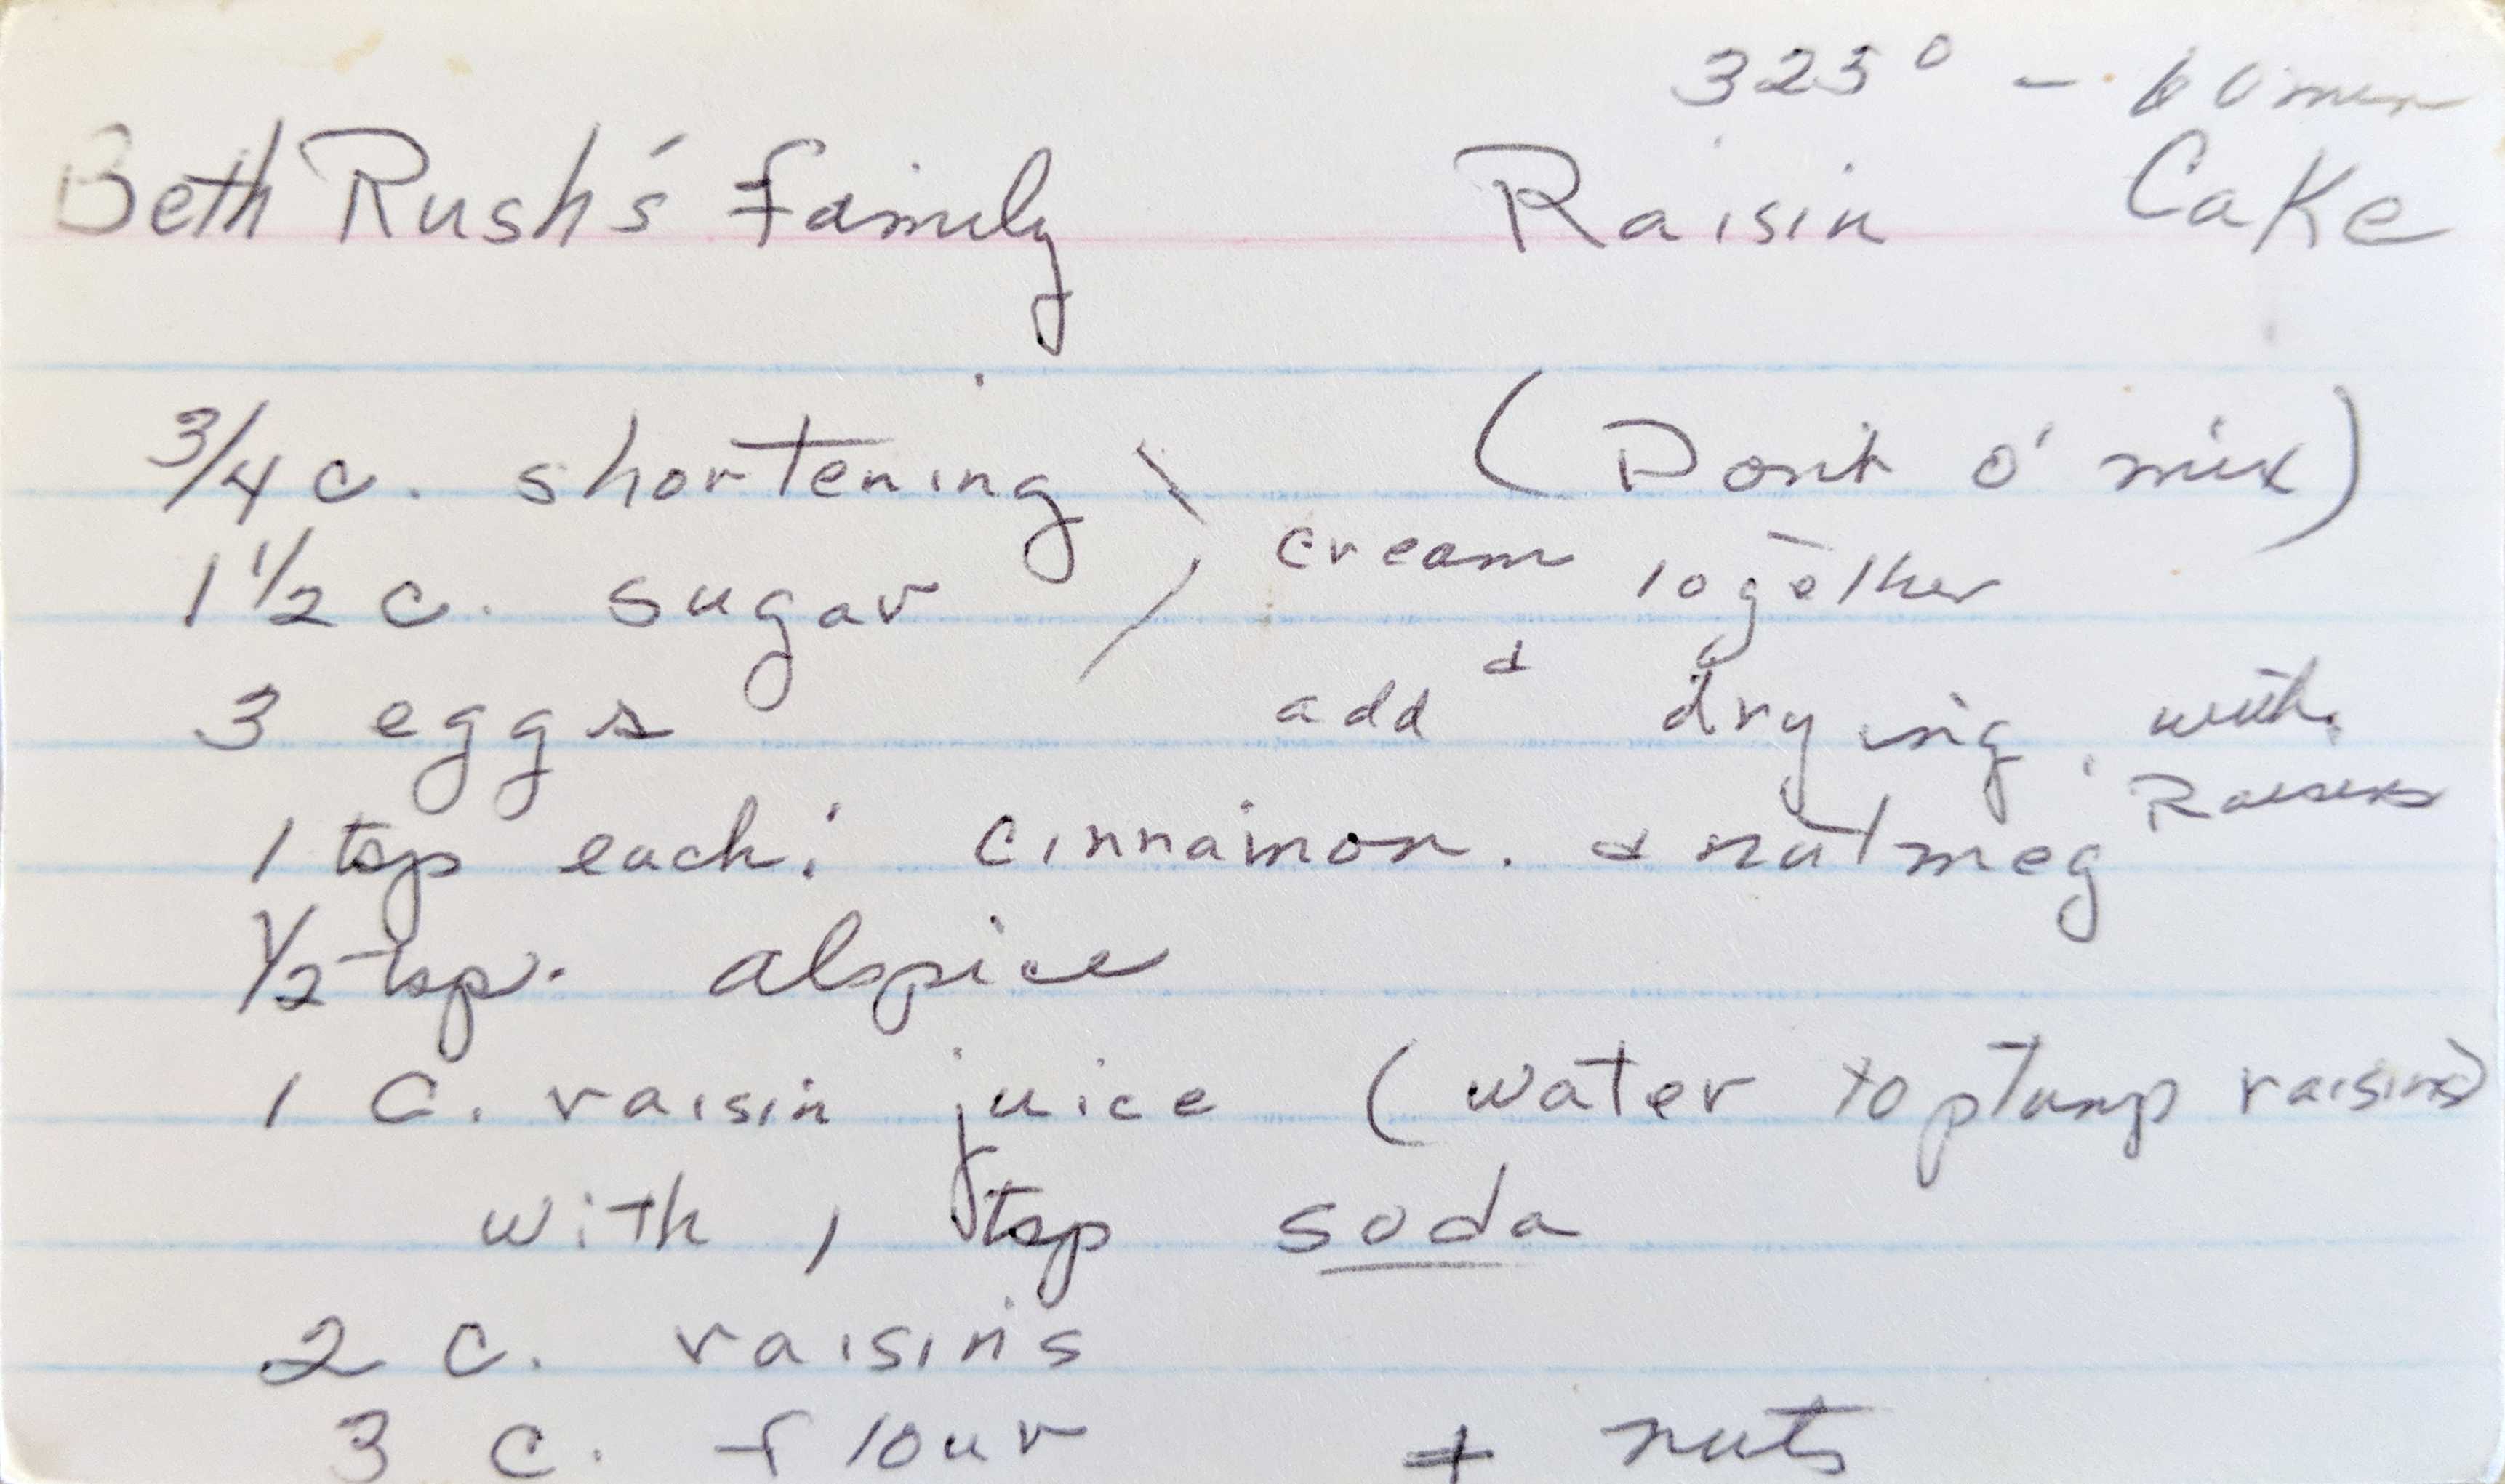 325° - 60 min
Beth Rush's family Raisin Cake
3/4 c. shortening (Don't o' mix)
1 1/2 c. sugar cream together
3 eggs add & dry ing. with Raisins
1 tsp each: cinnamon. & nutmeg
1/2 tsp. alspice
1 C. raisin juice (water to plump raisins)
with 1 tsp soda
2 c. raisins
3 c. flour + nuts